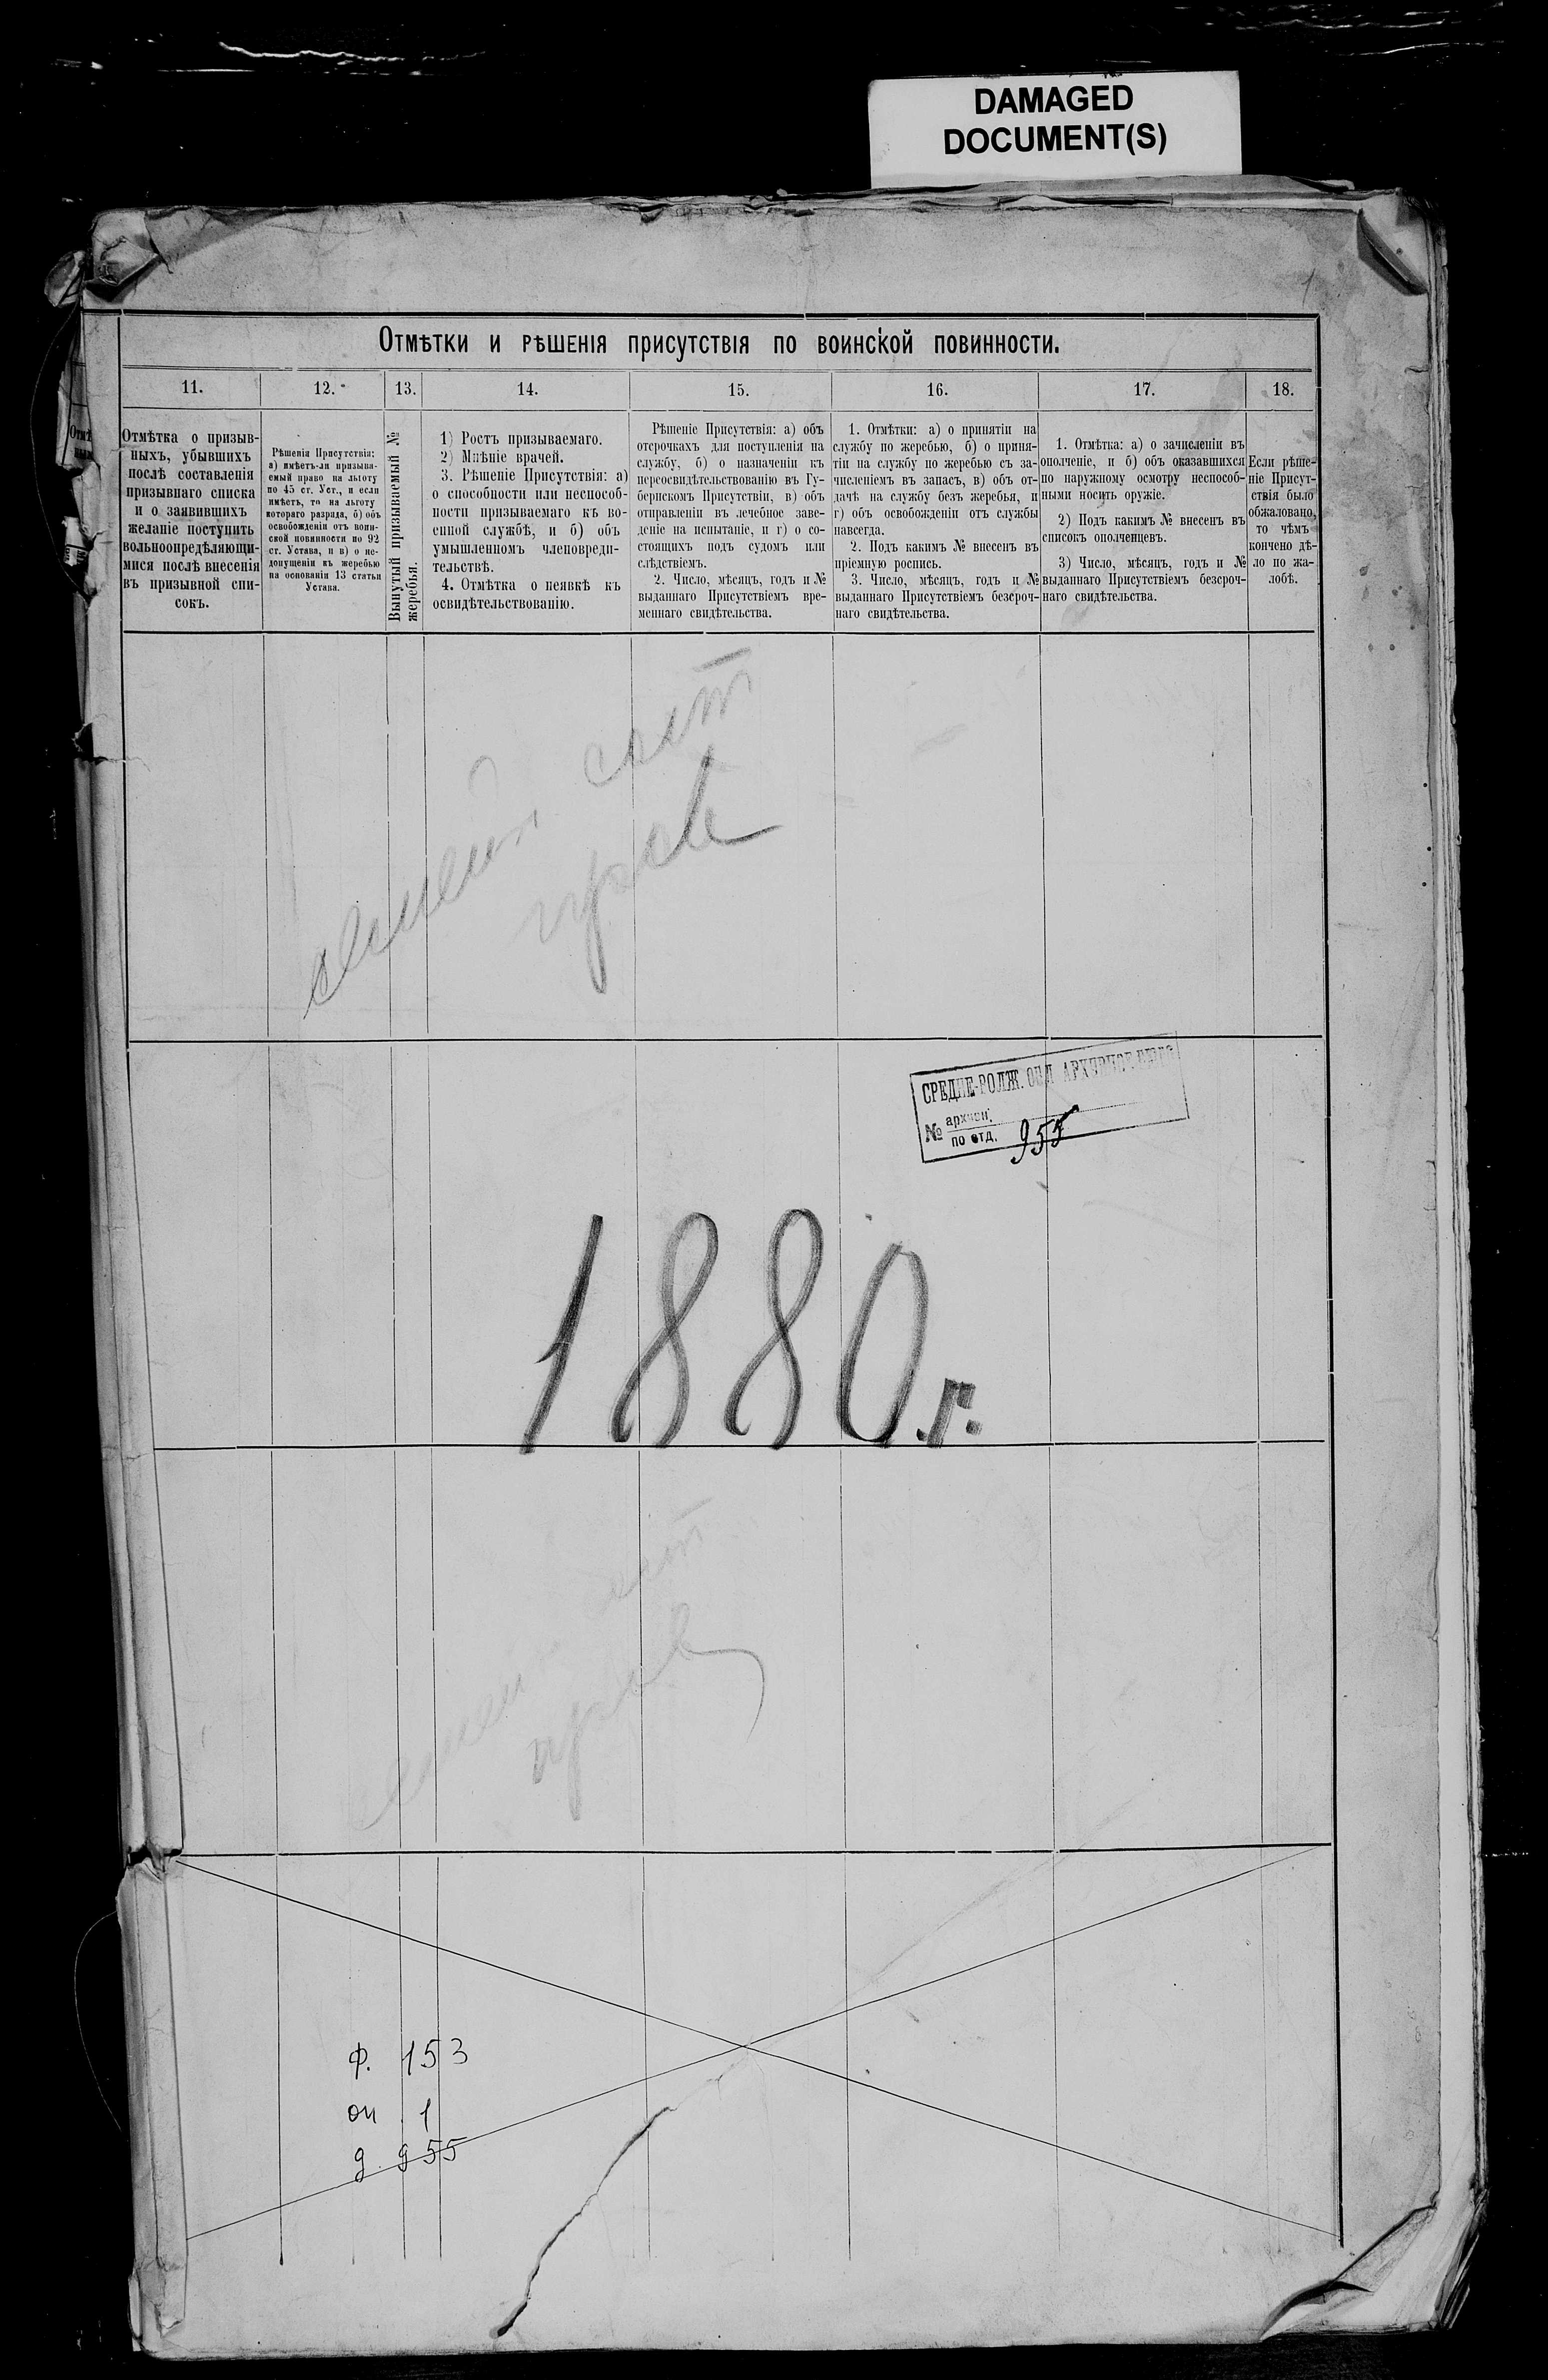 DAMAGED
DOCUMENT(S)
1
Отмѣтки и рѣшенія присутствія по воинской повинности.
11.
12.
13.
14.
15.
16.
17.
18.
Отмѣтка о призыв-
ныхъ, убывшихъ
послѣ составленія
призывнаго списка
и о заявившихъ
желаніе поступить
вольноопредѣляющи-
мися послѣ внесенія
въ призывной спи-
сокъ.
Рѣшенія Присутствія:
а) имѣетъ-ли призыва-
емый право на льготу
по 45 ст. Уст., и если
имѣетъ, то на льготу
котораго разряда, б) объ
освобожденіи отъ воин-
ской повинности по 92
ст. Устава, и в) о не-
допущеніи къ жеребью
на основаніи 13 статьи
Устава.
Вынутый призываемый №
жеребья.
1) Ростъ призываемаго.
2) Мнѣніе врачей.
3. Рѣшеніе Присутствія: а)
о способности или неспособ-
ности призываемаго къ во-
енной службѣ, и б) объ
умышленномъ членовреди-
тельствѣ.
4. Отмѣтка о неявкѣ къ
освидѣтельствованію.
Рѣшеніе Присутствія: а) объ
отсрочкахъ для поступленія на
службу, б) о назначеніи къ
переосвидѣтельствованію въ Гу-
бернскомъ Присутствіи, в) объ
отправленіи въ лечебное заве-
деніе на испытаніе, и г) о со-
стоящихъ подъ судомъ или
слѣдствіемъ.
2. Число, мѣсяцъ, годъ и №
выданнаго Присутствіемъ вре-
меннаго свидѣтельства.
1. Отмѣтки: а) о принятіи на
службу по жеребью, б) о приня-
тіи на службу по жеребью съ за-
численіемъ въ запасъ, в) объ от-
дачѣ на службу безъ жеребья, и
г) объ освобожденіи отъ службы
навсегда.
2. Подъ какимъ № внесенъ въ
пріемную роспись.
3. Число, мѣсяцъ, годъ и №
выданнаго Присутствіемъ безсроч-
наго свидѣтельства.
1. Отмѣтка: а) о зачисленіи въ
ополченіе, и б) объ оказавшихся
по наружному осмотру неспособ-
ными носить оружіе.
2) Подъ какимъ № внесенъ въ
списокъ ополченцевъ.
3) Число, мѣсяцъ, годъ и №
выданнаго Присутствіемъ безсроч-
наго свидѣтельства.
Если рѣше-
ніе Присут-
ствія было
обжаловано,
то чѣмъ
кончено дѣ-
ло по жа-
лобѣ.
СРЕДНЕ-ВОЛЖ. ОБЛ АРХИВНОЕ БЮРО
№ архивн.
по отд. 955
1880.г.
Ф. 153
оп 1
д. 955